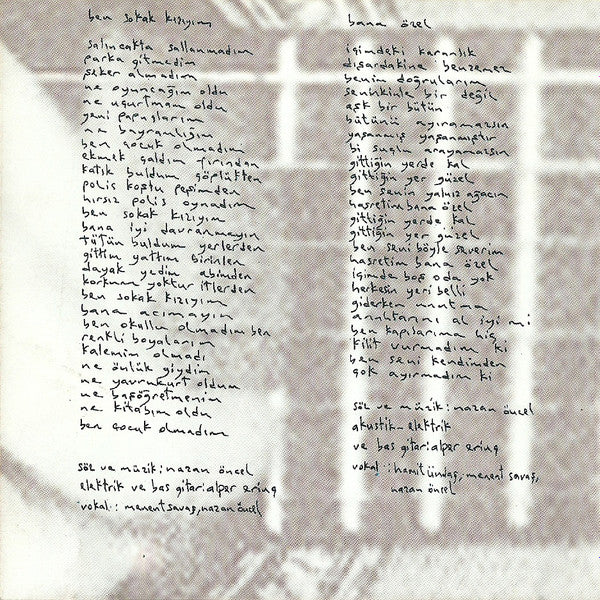 ben sokak kızıyım
salıncakta sallanmadım
parka gitmedim
şeker almadım
ne oyuncağım oldu
ne uçurtmam oldu
yeni papuçlarım
ne bayramlığım
ben çocuk olmadım
ekmek çaldım fırından
katık buldum çöplükten
polis koştu peşimden
hırsız polis oynadım
ben sokak kızıyım
bana iyi davranmayın
tütün buldum yerlerden
gittim yattım birinlen
dayak yedim abimden
korkum yoktur itlerden
ben sokak kızıyım
bana acımayın
ben okullu olmadım ben
renkli boyalarım
kalemim olmadı
ne önlük giydim
ne yavrukurt oldum
ne başöğretmenim
ne kitabım oldu
ben çocuk olmadım
söz ve müzik: nazan öncel
elektrik ve bas gitar: alper erinç
vokal: menent savaş, nazan öncel
bana özel
içimdeki karanlık
dışardakine benzemez
benim doğrularım
seninkinle bir değil
aşk bir bütün
bütünü ayıramazsın
yaşanmış yaşanmıştır
bi suçlu arayamazsın
gittiğin yerde kal
gittiğin yer güzel
ben senin yalnız ağacın
hasretim bana özel
gittiğin yerde kal
gittiğin yer güzel
ben seni böyle severim
hasretim bana özel
içimde boş oda yok
herkesin yeri belli
giderken unutma
anahtarını al iyi mi
ben kapılarıma hiç
kilit vurmadım ki
ben seni kendimden
çok ayırmadım ki
söz ve müzik: nazan öncel
akustik - elektrik
ve bas gitar: alper erinç
vokal: hamit ündaş, menent savaş,
nazan öncel